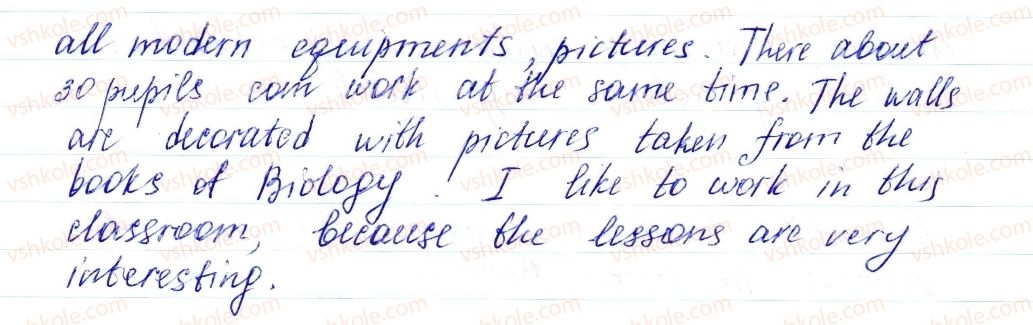 all modern equipments, pictures. There about
30 pupils can work at the same time. The walls
are decorated with pictures taken from the
books of Biology. I like to work in this
classroom, because the lessons are very
interesting.